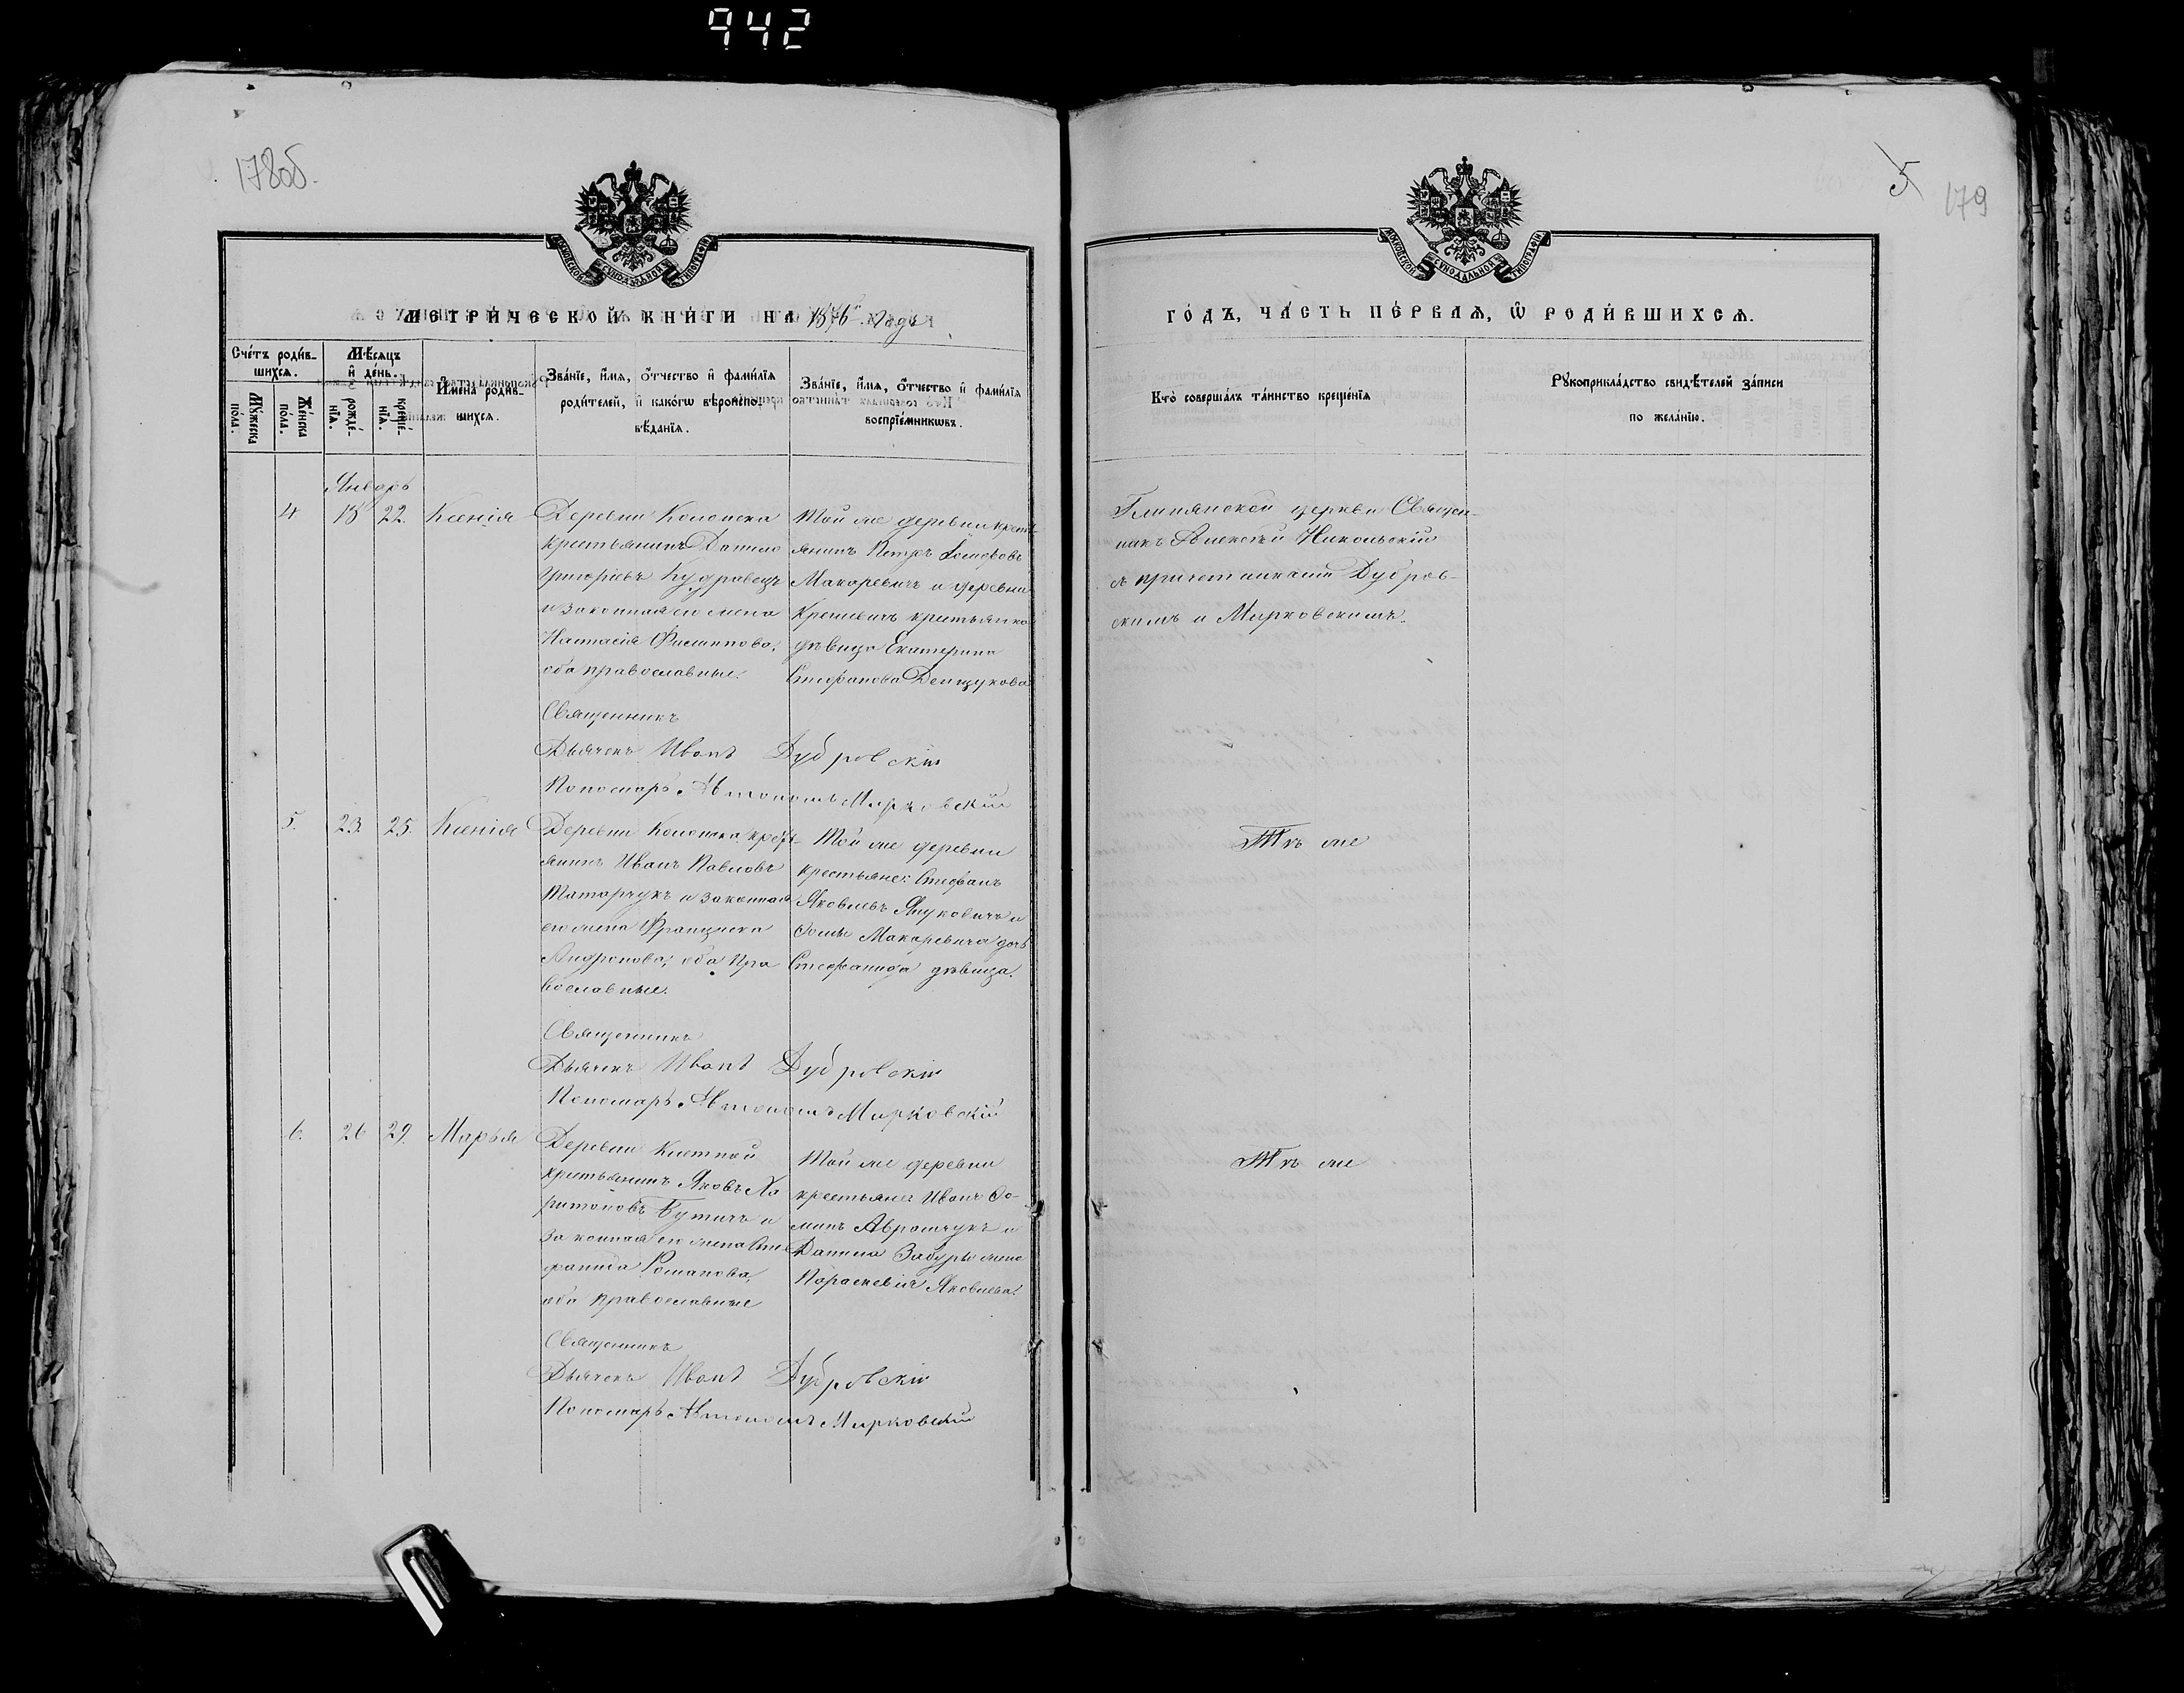 942
178об.
МОСКОВСКОЙ СѴНОДАЛЬНОЙ ТИПОГРАФІИ
МЕТРИ́ЧЕСКОЙ КНИ́ГИ НА 1876й Годъ
Сче́тъ роди́в-
шихсѧ.
Мꙋ́жеска
по́ла.
Же́нска
по́ла.
Мѣ́сѧцъ
и҆ де́нь.
рожде́-
нїѧ.
креще́-
нїѧ.
И҆мена̀ роди́в-
шихсѧ.
Зва́нїе, и҆́мѧ, ѻ҆́тчество и҆ фами́лїѧ
роди́телей, и҆ како́гѡ вѣроиспо-
вѣ́данїѧ.
Зва́нїе, и҆́мѧ, ѻ҆́тчество и҆ фами́лїѧ
воспрїе́мникѡвъ.
Январь
4 18 22. Ксенія
Деревни Колонска
крестьянинъ Данило
Григоріевъ Кудравецъ
и законная его жена
Настасія Филиппова,
оба православные.
Той же деревни крестья-
янинъ Петръ Іосифовъ
Макаревичъ и деревни
крестьянка
дѣвица Екатерина
Стефанова Денщукова
Священникъ
Дьячекъ Иванъ Дубровскій
Пономарь Автономъ Мирковскій
5. 23. 25. Ксенія
Деревни Колонска крест-
янинъ Иванъ Павловъ
Татарчукъ и законная
его жена Франциска
Андронова, оба пра
вославные.
Той же деревни
крестьяне: Стефанъ
Яковлевъ Януковичъ и
Ѳомы Макаревича дочь
Стефанида дѣвица.
Священникъ
Дьячекъ Иванъ Дубровскій
Пономарь Автономъ Мирковскій
6. 26 29. Марья
Деревни Клетной
крестьянинъ Яковъ Ха
ритоновъ Бутичъ и
законная его жена Сте
фанида Романова,
оба православные
Той же деревни
крестьяне Иванъ Ѳо-
минъ Аврамчукъ и
Данила Забуры жена
Параскевія Яковлева.
Священникъ
Дьячекъ Иванъ Дубровскій
Пономарь Автономъ Мирковскій
5
179
МОСКОВСКОЙ СѴНОДАЛЬНОЙ ТИПОГРАФІИ
ГО́ДЪ, ЧА́СТЬ ПЕ́РВАѦ, Ѡ҆ РОДИ́ВШИХСѦ.
Кто̀ соверша́лъ та́инство креще́нїѧ
Рꙋкоприкла́дство свидѣ́телей за́писи
по жела́нїю.
церкви Священ-
никъ Алексѣй Никольскій
съ причетниками Дубров-
скимъ и Мирковскимъ.
Тѣ же
Тѣ же